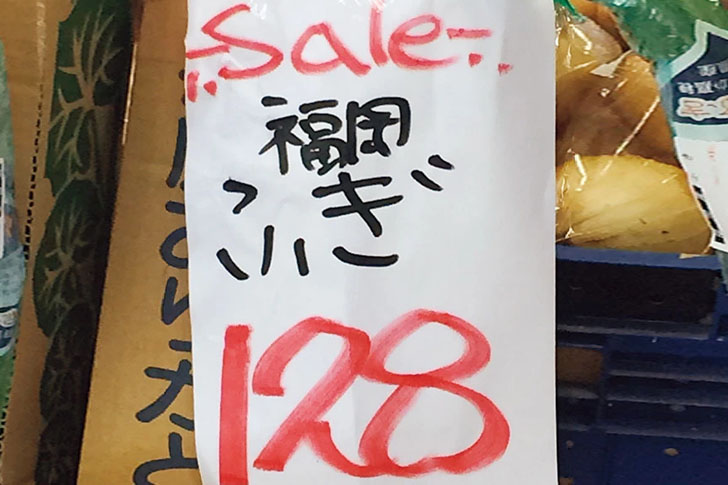 Sale
福岡
ふき゛
128